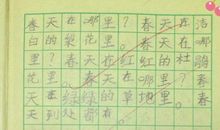 春天在哪里？春天在洁
白的梨花里。春天在
哪里？春天在红红的杜鹃
花里。春天在哪里？春
天在绿绿的草地里。春
天到处都有。